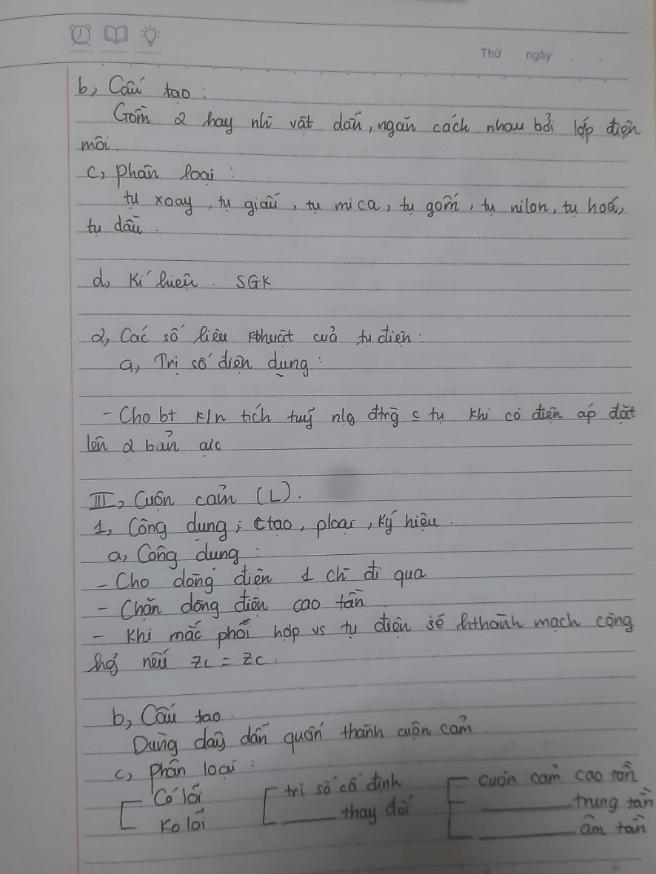 Thứ ngày
b, Cấu tạo :
Gồm 2 hay nh` vật dẫn, ngăn cách nhau bởi lớp điện
môi.
c, phân loại :
tụ xoay, tụ giấy, tụ mica, tụ gốm, tụ nilon, tụ hoá,
tụ dầu.
d, Kí hiệu. SGK
2, Các số liệu kthuật của tụ điện :
a, Trị số điện dung :
- Cho bt k/n tích luỹ nlg đtrg c tụ khi có điện áp đặt
lên 2 bản cực
III, Cuộn cảm (L).
1, Công dụng, ctạo, ploại, ký hiệu.
a, Công dụng :
- Cho dòng điện 1 chì đi qua
- Chặn dòng điện cao tần
- Khi mắc phối hợp vs tụ điện sẽ hthành mạch cộng
hg nếu ZL = ZC.
b, Cấu tạo.
Dùng dây dẫn quấn thành cuộn cảm.
c, phân loại :
Có lõi trị số cố định cuộn cảm cao tần
Ko lõi ____ thay đổi ____ trung tần
____ âm tần